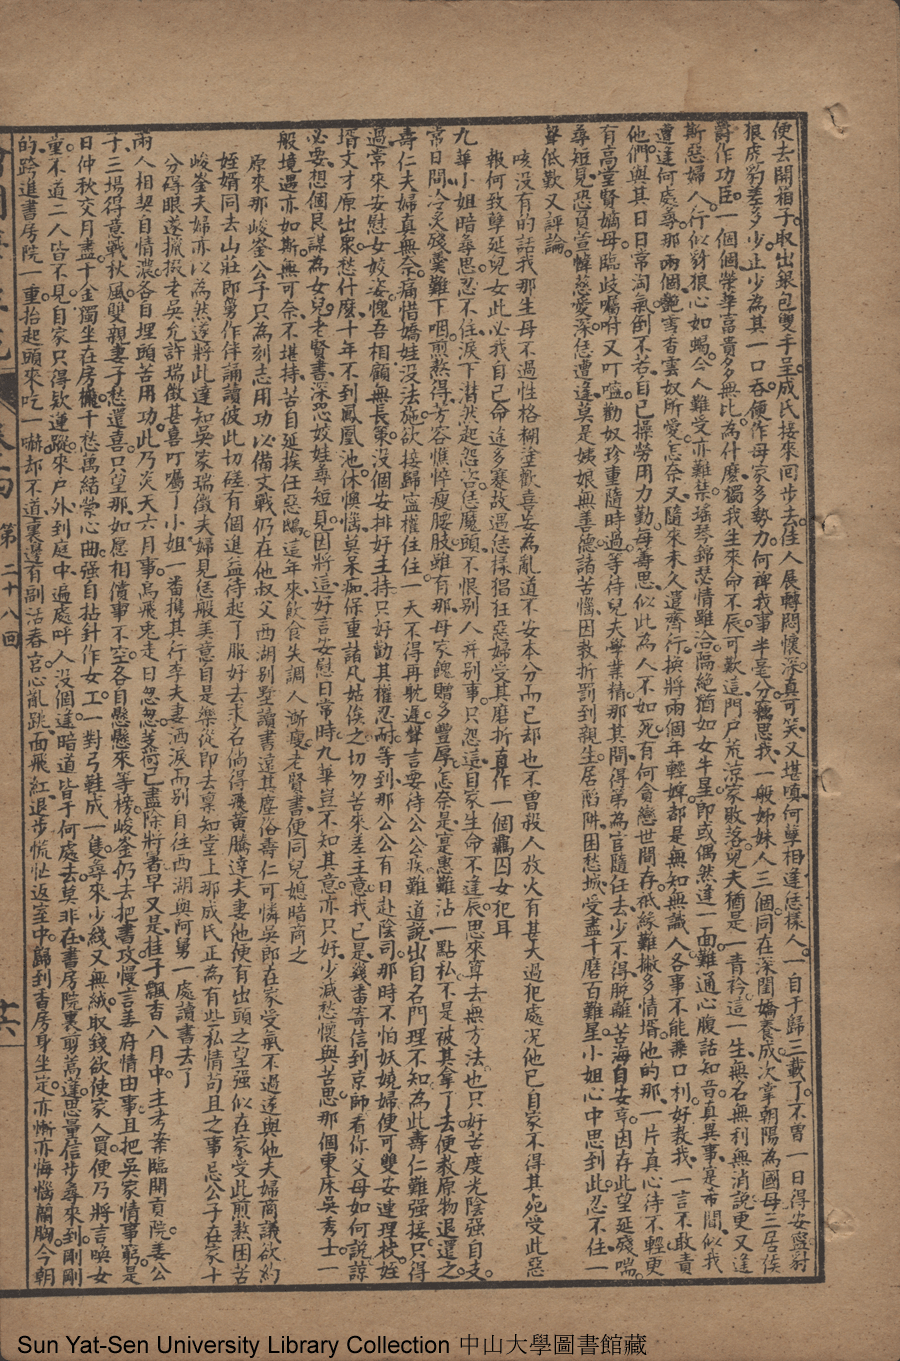 便去開箱子取出銀包雙手呈成氏接來同步去佳人展轉悶懷深真可笑又堪嗔何孽相逢恁樣人一自于歸三載了不曾一日得安寧豺
狼虎豹差多少止少為其一口吞便作母家多勢力何裨我事半毫分竊思我一般姊妹人三個同在深閨嬌養成次掌朝陽為國母三居侯
爵作功臣一個個榮華富貴多無比為什麼獨我生來命不辰可歎這門戶荒涼家敗落兒夫猶是一青衿這一生無名無利無消說更又逢
斯惡婦人行似豺狼心如蝎令人難受亦難禁瑤琴錦瑟情雖洽隔絕猶如女牛星即或偶然逢一面難通心腹話知音真異事寔希聞似我
遭逢何處尋那兩個艷雪香雲奴所愛怎奈又隨來未久遣齊行換將兩個年輕婢都是無知無識人各事不能兼口利好教我一言不敢責
他們與其日日常淘氣倒不若自己操勞用力勤每尋思似此為人不如死有何貪戀世間存祗緣難撇多情壻他的那一片真心待不輕更
有高堂賢嫡母臨歧囑咐又叮嚀勸奴珍重隨時過等待兒夫學業精那其間得第為官隨任去少不得脫離苦海自安享因存此望延殘喘
尋短見恐負萱幃慈愛深恁遭逢莫是姨娘無善德諸苦惱因教折罰到親生居陷阱困愁城受盡千磨百難星小姐心中思到此忍不住一
聲低歎又評論
咳沒有的話我那生母不過性格糊塗歡喜妄為亂道不安本分而已却也不曾殺人放火有甚天過犯處況他已自家不得其死受此惡
報何致孽延兒女此必我自己命途多蹇故遇恁樣猖狂惡婦受其磨折直作一個羈囚女犯耳
九華小姐暗尋思忍不住淚下潸然起怨咨恁魔頭不恨別人并別事只怨這自家生命不逢辰思來算去無方法也只好苦度光陰強自支
常日間冷炙殘羹難下咽煎熬得芳容憔悴瘦腰肢雖有那母家餽贈多豐厚怎奈是寔惠難沾一點私不是被其拿了去便教原物退還之
壽仁夫婦真無奈痛惜嬌娃沒法施欲接歸寧權住住一天不得再耽遲聲言要待公公疾難道說出自名門理不知為此壽仁難強接只得
過常來安慰女姣姿愧吾相顧無長策沒個安排好主持只好勸其權忍耐等到那公公有日赴陰司那時不怕妖嬈婦便可雙安連理枝姪
壻丈才原出衆愁什麼十年不到鳳凰池休懊惱莫呆痴保重諸凡姑俟之切勿苦來差主意我已是幾番寄信到京師看你父母如何說諒
必要想個良謀為女兒老賢書深恐姣娃尋短見因將這好言安慰日常時九華豈不知其意亦只好少減愁懷與苦思那個東床吳秀士一
般境遇亦如斯無可奈不堪持苦自延挨任惡鴟這年來飲食失調人漸瘦老賢書便同兒媳暗商之
原來那峻峯公子只為刻志用功以備丈戰仍在他叔父西湖別墅讀書遠其塵俗壽仁可憐吳郎在家受氣不過遂與他夫婦商議欲約
姪婿同去山莊即第作伴誦讀彼此切磋有個進益待起了服好去求名倘得飛黃騰達夫妻他便有出頭之望強似在家受此煎熬困苦
峻峯夫婦亦以為然遂將此達知吳家瑞徵夫婦見恁般美意自是樂從即去稟知堂上那成氏正為有些私情苟且之事忌公子在家十
分碍眼遂攛掇老吳允許瑞徵甚喜叮囑了小姐一番携其行李夫妻洒淚而別自往西湖與阿舅一處讀書去了
兩人相契自情濃各自埋頭苦用功此乃炎天六月事烏飛兎走日忽忽荚荷已盡除將暑早又是桂子飄香八月中主考案臨開貢院姜公
子三塲得意戰秋風雙親妻子愁還喜只望那如愿相償事不空各自懸懸來等榜峻峯仍去把書攻慢言姜府情由事且把吳家情事窮是
日仲秋交月盡十金獨坐在房櫳千愁萬結縈心曲强自拈針作女工一對弓鞋成一隻尋來少綫又無絨取錢欲使家人買便乃將言喚女
童不道二人皆不見自家只得欵蓮蹤來戶外到庭中遍處呼人沒個逢暗道皆于何處去莫非在書房院裏剪蒿蓬思量信步尋來到剛剛
的跨進書房院一重抬起頭來吃一嚇却不道裏邊有副活春宮心亂跳面飛紅退步慌忙返至中歸到香房身坐定亦慚亦悔惱蘭胸今朝
第二十八回
Sun Yat-Sen University Library Collection 中山大學圖書館藏